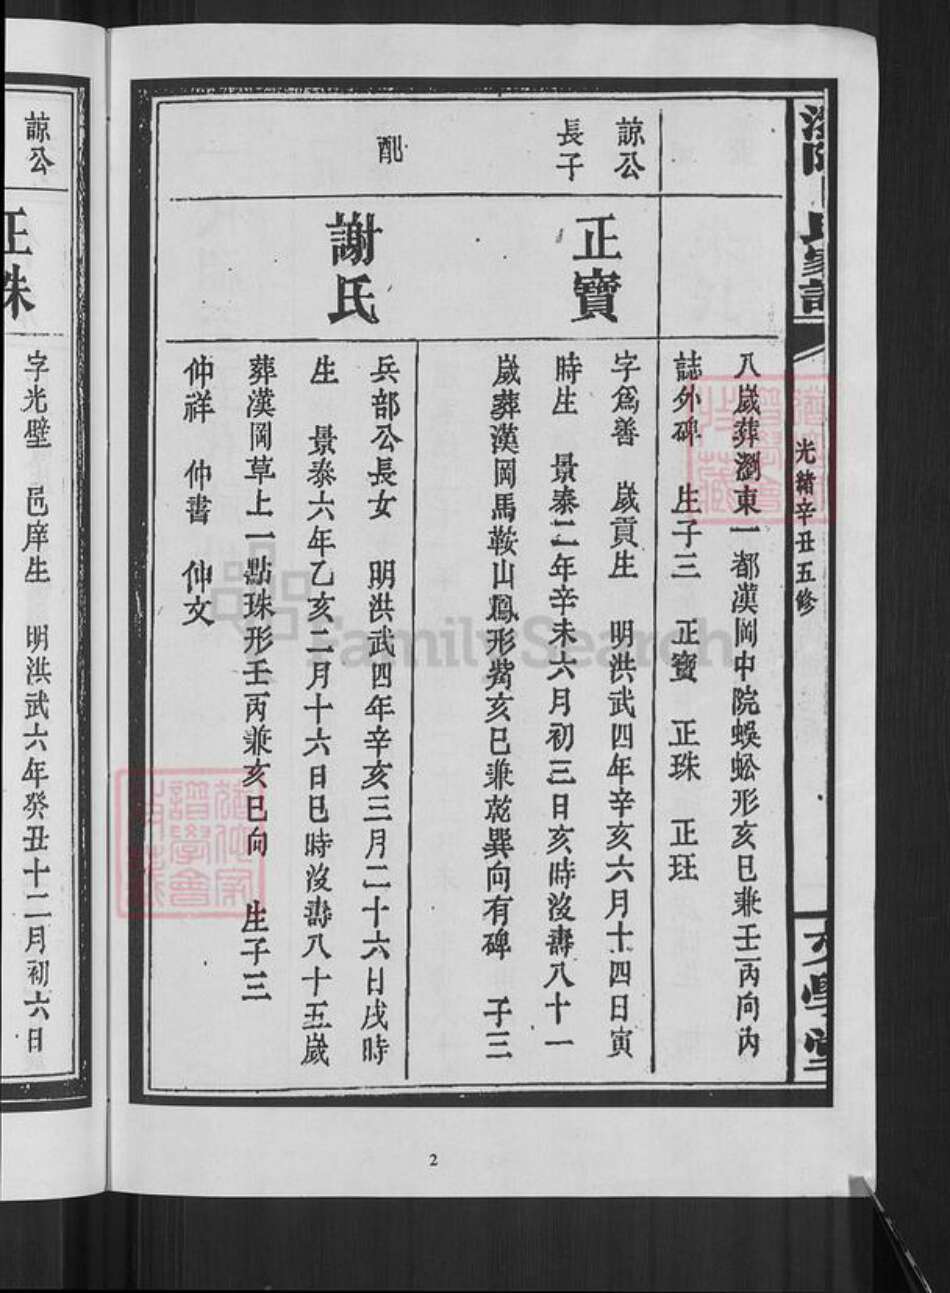 光緒辛丑五修
八嵗葬瀏東一都漢岡中院蜈蚣形亥巳兼壬丙向內
誌外碑 生子三 正寶 正珠 正玨
諒公
長子
正寶
字爲善 嵗貢生 明洪武四年辛亥六月十四日寅
時生 景泰二年辛未六月初三日亥時沒壽八十一
嵗葬漢岡馬鞍山鳳形觜亥巳兼乾巽向有碑 子三
配
謝氏
兵部公長女 明洪武四年辛亥三月二十六日戌時
生 景泰六年乙亥二月十六日巳時沒壽八十五嵗
葬漢岡草上一點珠形壬丙兼亥巳向 生子三
仲祥 仲書 仲文
諒公
正珠
字光壁 邑庠生 明洪武六年癸丑十二月初六日
2
FamilySearch